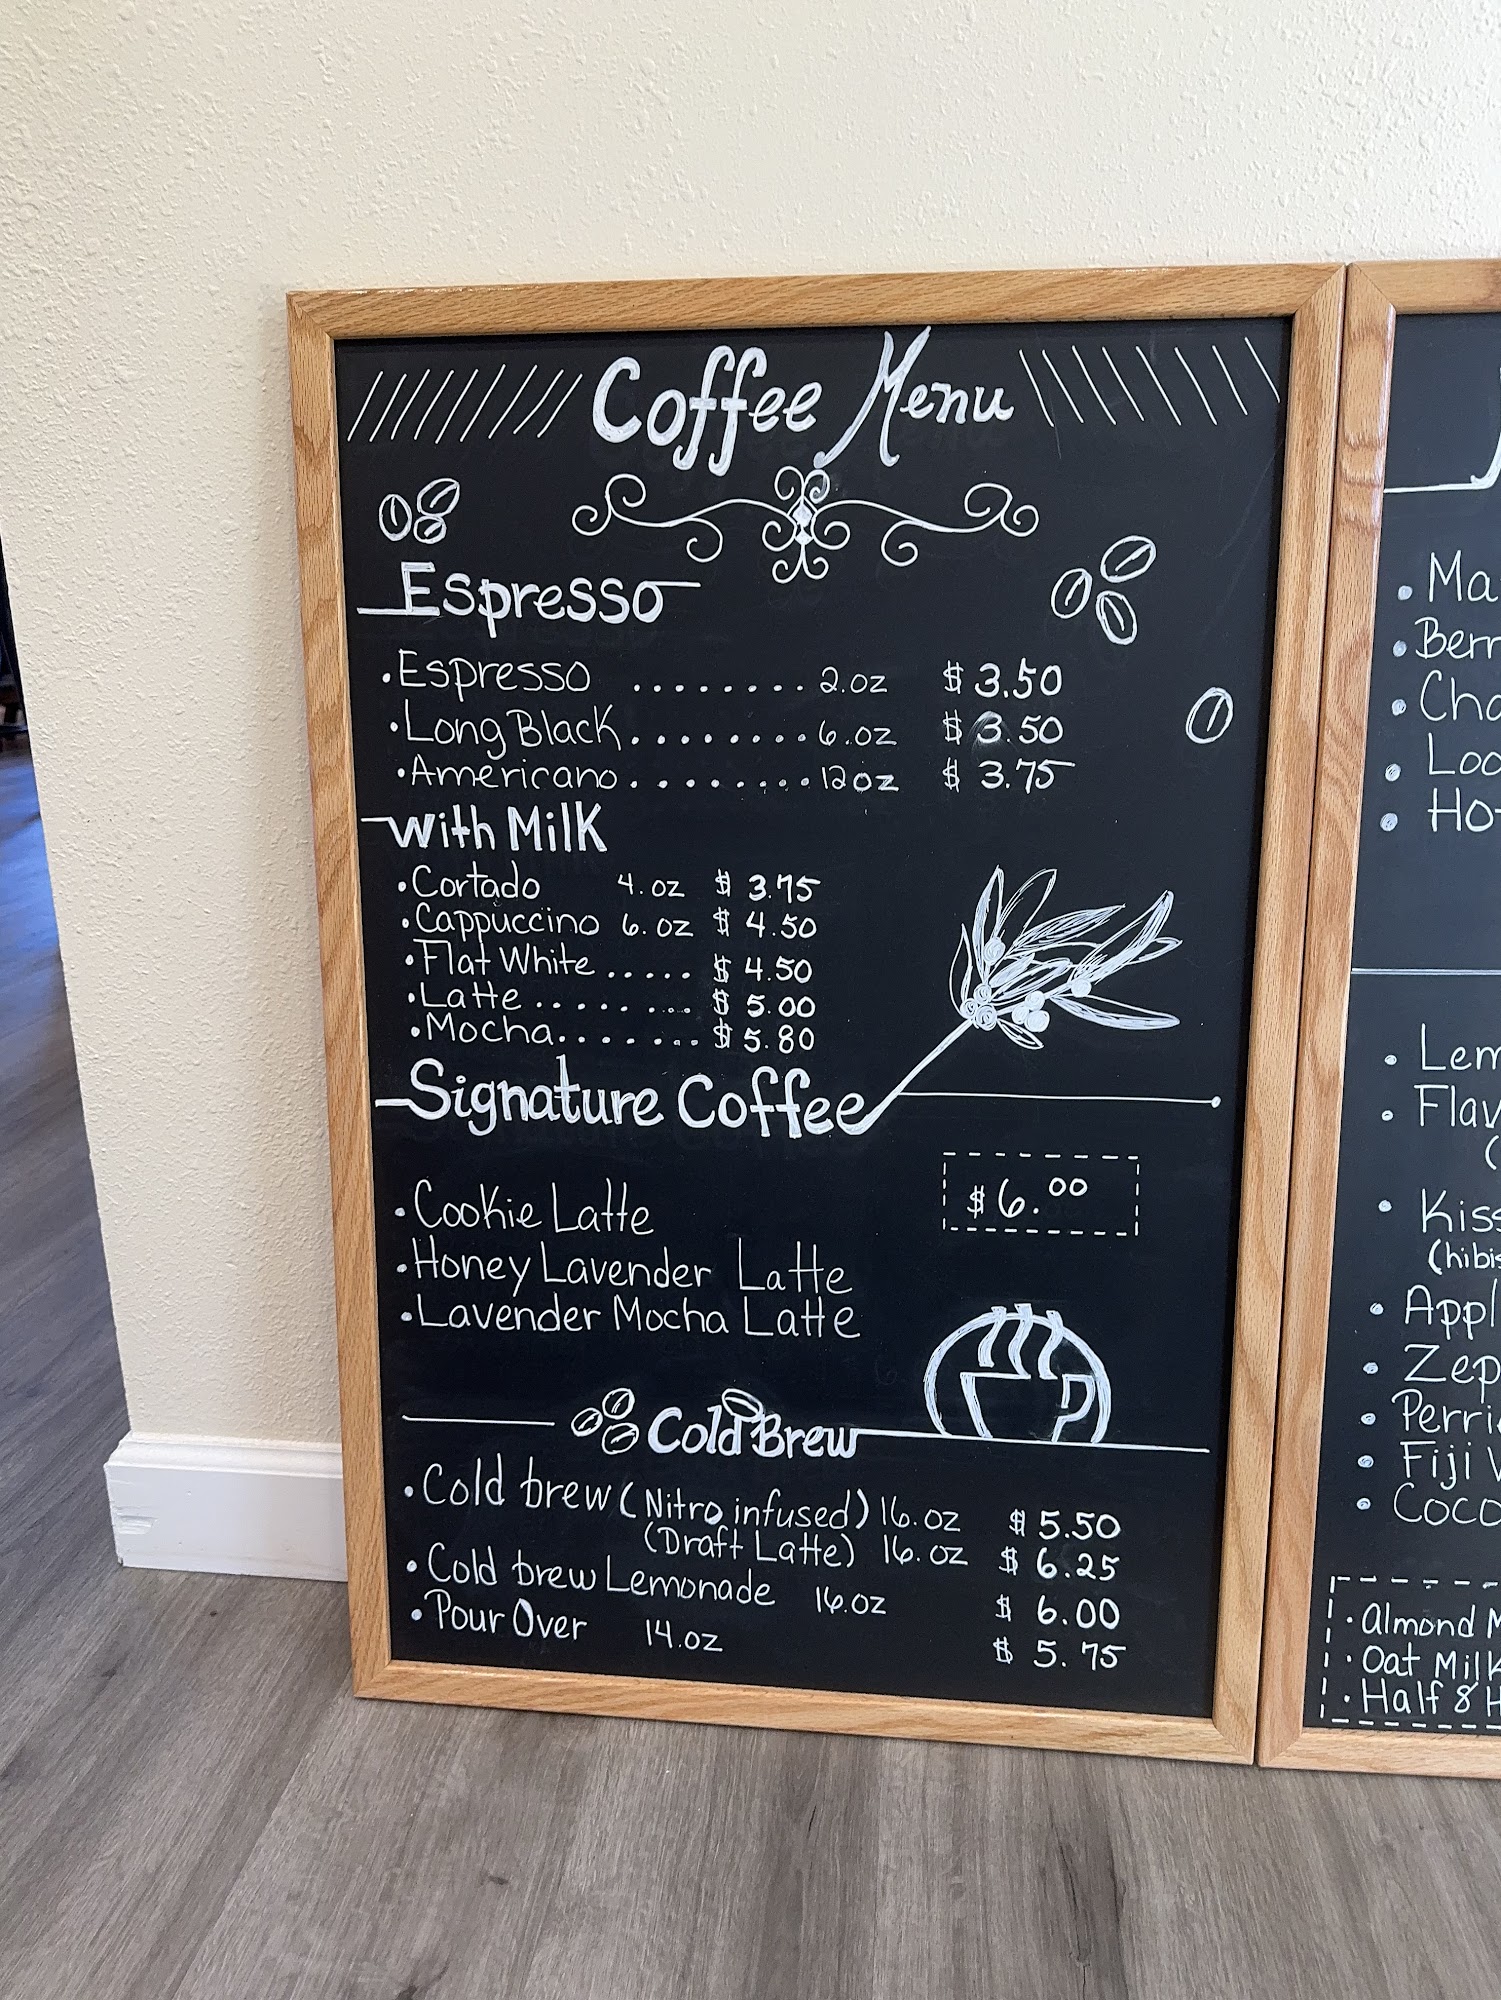 Coffee Menu
Espresso
• Espresso ........ 2.oz $ 3.50
• Long Black ........ 6.oz $ 3.50
• Americano ........ 12oz $ 3.75
With Milk
• Cortado 4.oz $ 3.75
• Cappuccino 6.oz $ 4.50
• Flat White ..... $ 4.50
• Latte ......... $ 5.00
• Mocha ....... $ 5.80
Signature Coffee
$ 6.00
• Cookie Latte
• Honey Lavender Latte
• Lavender Mocha Latte
Cold Brew
• Cold brew (Nitro infused) 16.oz $ 5.50
(Draft Latte) 16.oz $ 6.25
• Cold brew Lemonade 16.oz $ 6.00
• Pour Over 14.oz $ 5.75
• Ma
• Berr
• Cho
• Loo
• Hot
• Lem
• Flav
(
• Kiss
(hibis
• Appl
• Zep
• Perri
• Fiji
• Coco
• Almond M
• Oat Milk
• Half & H